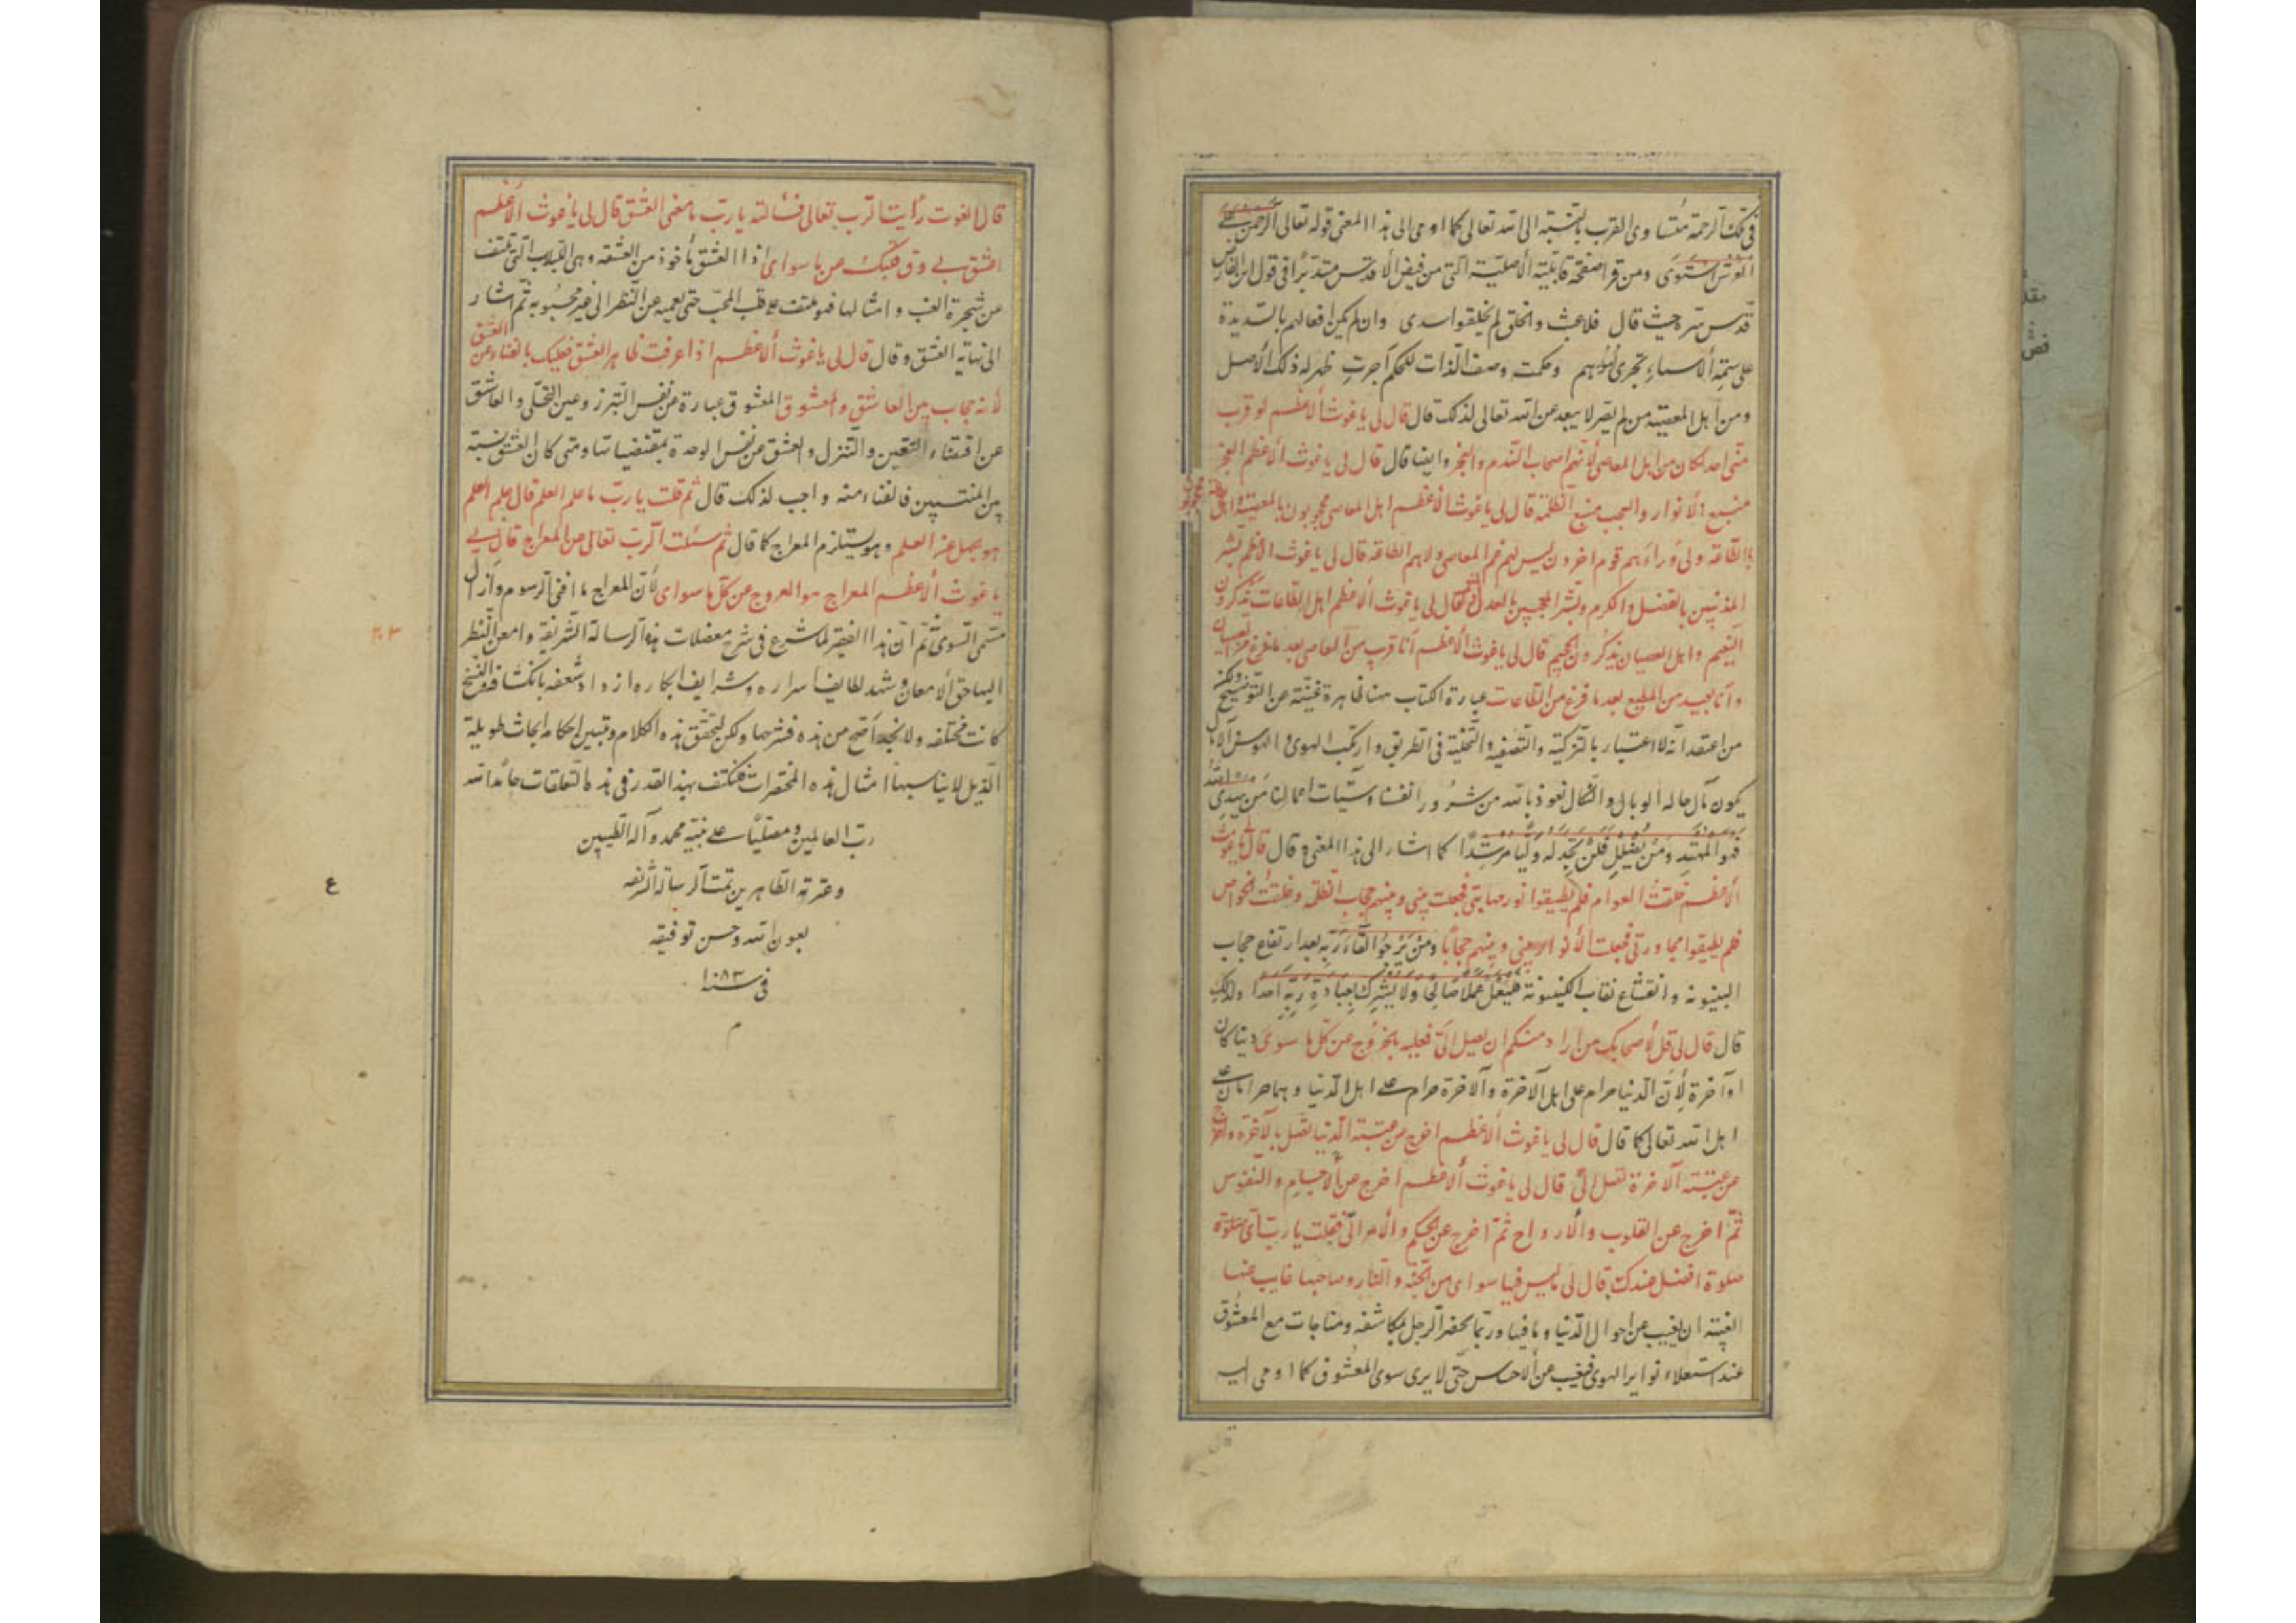 فی تلک الرحمة متساوی القرب بالنسبة الی الله تعالی کما اوحی الی هذا المعنی قوله تعالی الرحمن علی
العرش استوی ومن قرا صفحة قابلیته الاصلیة التی من فیض الاقدس متدبرا فی قول ابن الفارض
قدس سره حیث قال فلا عبث والخلق لم یخلقوا سدی وان لم یکن افعالهم بالسدیدة
علی سمة الاسماء تجری امورهم وحکمة وصف الذات للحکم اجرت ظهر له ذلک الاصل
ومن اهل المعصیة من لم یصر لا یبعد عن الله تعالی لذلک قال قال لی یا غوث الاعظم لو قرب
منی احد لکان من اهل المعاصی لانهم اصحاب الندم والعجز وایضا قال قال لی یا غوث الاعظم العجز
منبع الانوار والعجب منبع الظلمة قال لی یا غوث الاعظم اهل المعاصی محجوبون بالمعصیة واهل
بالطاعة ولی وراءهم قوم اخرون لیس لهم غم المعاصی ولا هم الطاعة قال لی یا غوث الاعظم بشر
المذنبین بالفضل والکرم وبشر المعجبین بالعدل قال لی یا غوث الاعظم اهل الطاعات یذکرون
النعیم واهل العصیان یذکرون الجحیم قال لی یا غوث الاعظم انا قرب من العاصی بعد ما فرغ من العصیان
وانا بعید من المطیع بعد ما فرغ من الطاعات عبارة الکتاب هنا ظاهرة غنیة عن التوضیح ولکن
من اعتقد انه لا اعتبار بالتزکیة والتصفیة والتخلیة فی الطریق وارتکب الهوی والهوس
یکون مآل حاله الوبال والنکال نعوذ بالله من شرور انفسنا وسیئات اعمالنا من یهدی الله
فهو المهتد ومن یضلل فلن تجد له ولیا مرشدا کما اشار الی هذا المعنی وقال قال لی یا غوث
الاعظم خلقت العوام فلم یطیقوا نور فجعلت بینی وبینهم حجاب الظلمة وخلقت الخواص
فلم یطیقوا مجاورتی فجعلت الانوار بینی وبینهم حجابا ومن یرجو لقاء ربه بعد ارتفاع حجاب
البینونة وانقشاع نقاب الکینونة فلیعمل عملا صالحا ولا یشرک بعبادة ربه احدا ولذلک
قال قال لی قل لاصحابک من اراد منکم ان یصل الی فعلیه بخروج عن کل ما سوی دنیا کان
او آخرة لان الدنیا حرام علی اهل الآخرة والآخرة حرام علی اهل الدنیا وهما حرامان علی
اهل الله تعالی کما قال قال لی یا غوث الاعظم اخرج من عقبة الدنیا تصل بالآخرة واخرج
عن عقبة الآخرة تصل الی قال لی یا غوث الاعظم اخرج عن الاجسام والنفوس
ثم اخرج عن القلوب والارواح ثم اخرج عن الحکم والامر الی فقلت یا رب ای صلوة
صلوة افضل عندک قال لی ما لیس فیها سوای من الجنة والنار وصاحبها غایب عنها
الغیبة ان یغیب عن احوال الدنیا وما فیها وربما یحضر الرجل بمکاشفة ومناجات مع المعشوق
عند استعلاء نوایر الهوی فیغیب عن الاحساس حتی لا یری سوی المعشوق کما اوحی الیه
قال الغوث رأیت الرب تعالی فسألته یا رب ما معنی العشق قال لی یا غوث الاعظم
اعشق بی وق قلبک عن ما سوای اذا العشق مأخوذ من العشقة وهی اللبلاب التی تلتف
عن شجرة العنب وامثالها فهو تلتف علی قلب المحب حتی یعمیه عن النظر الی غیر محبوبه ثم اشار
الی نهایة العشق وقال قال لی یا غوث الاعظم اذا عرفت ظاهر العشق فعلیک بالفناء عن العشق
لانه حجاب بین العاشق والمعشوق المعشوق عبارة عن نفس التبرز وعین التجلی والعاشق
عن اقتضاء التعین والتنزل والعشق عن نفس الوحدة بمقتضیاتها ومتی کان العشق نسبة
بین المنتسبین فالفناء منه واجب لذلک قال ثم قلت یا رب ما علم العلم قال علم العلم
هو بجهل عن العلم وهو یستلزم المعراج کما قال ثم سئلت الرب تعالی من المعراج قال لی
یا غوث الاعظم المعراج هو العروج عن کل ما سوای لان المعراج ما افنی الرسوم وازال
مسمی السوی ثم ان هذا الفقیر لما شرع فی شرح معضلات هذه الرسالة الشریفة وامعن النظر
الیها حق الامعان وشهد لطایف اسراره وشرایف ابکاره ازداد شغفه بانکشافه والنسخ
کانت مختلفة ولا نجد اصح من هذه فشرحها ولکن لتحقق هذه الکلام وتبیین احکامه ابحاث طویلة
الذیل لا یناسبها امثال هذه المختصرات فنکتف بهذا القدر فی هذه التعلقات حامدا لله
رب العالمین ومصلیا علی نبیه محمد وآله الطیبین
وعترته الطاهرین تمت الرسالة الشریفة
بعون الله وحسن توفیقه
فی سنة ١٠٨٣
م
ع